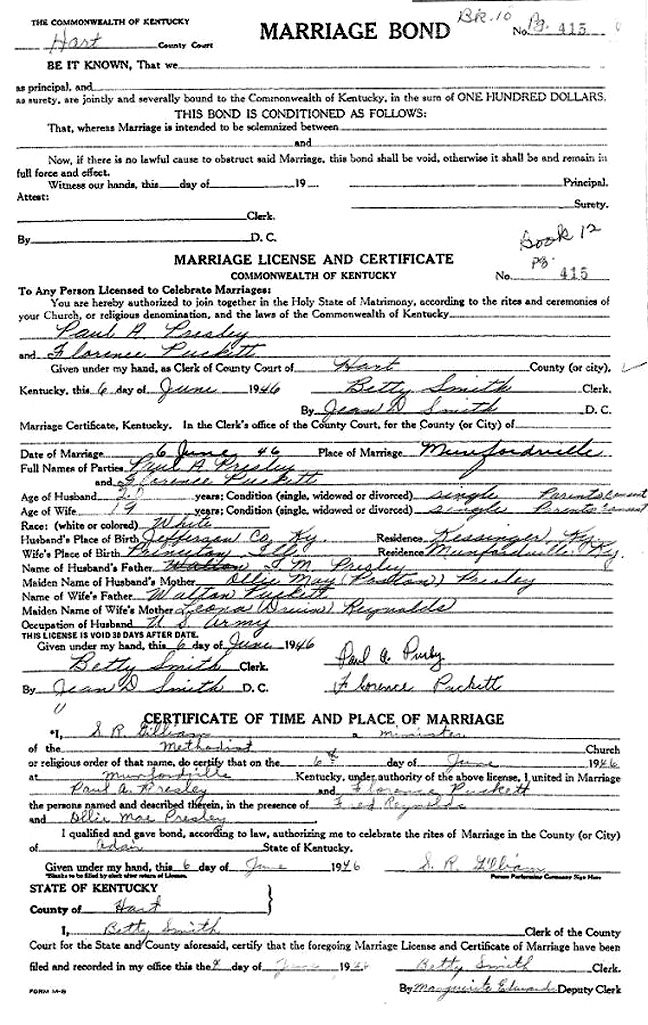 THE COMMONWEALTH OF KENTUCKY
Hart County Court
MARRIAGE BOND
BK. 10
No. Pg. 415
BE IT KNOWN, That we
as principal, and
as surety, are jointly and severally bound to the Commonwealth of Kentucky, in the sum of ONE HUNDRED DOLLARS.
THIS BOND IS CONDITIONED AS FOLLOWS:
That, whereas Marriage is intended to be solemnized between
and
Now, if there is no lawful cause to obstruct said Marriage, this bond shall be void, otherwise it shall be and remain in
full force and effect.
Witness our hands, this day of 19 Principal.
Attest: Surety.
Clerk.
By D. C.
Book 12
MARRIAGE LICENSE AND CERTIFICATE
COMMONWEALTH OF KENTUCKY
No. pg. 415
To Any Person Licensed to Celebrate Marriages:
You are hereby authorized to join together in the Holy State of Matrimony, according to the rites and ceremonies of
your Church, or religious denomination, and the laws of the Commonwealth of Kentucky
Paul A Presley
and Florence Puckett
Given under my hand, as Clerk of County Court of Hart County (or city),
Kentucky, this 6 day of June 1946 Betty Smith Clerk.
By Jean D Smith D. C.
Marriage Certificate, Kentucky. In the Clerk's office of the County Court, for the County (or City) of
Date of Marriage 6 June 46 Place of Marriage Munfordville
Full Names of Parties Paul A Presley
and Florence Puckett
Age of Husband years; Condition (single, widowed or divorced) single Parents consent
Age of Wife 19 years; Condition (single, widowed or divorced) single Parents consent
Race: (white or colored) White
Husband's Place of Birth Jefferson Co, Ky. Residence Kessinger, Ky.
Wife's Place of Birth Princeton Ills Residence Munfordville Ky.
Name of Husband's Father Walton J. M. Presley
Maiden Name of Husband's Mother Ollie May Presley
Name of Wife's Father Walton Puckett
Maiden Name of Wife's Mother Leona Reynolds
Occupation of Husband U S Army
THIS LICENSE IS VOID 30 DAYS AFTER DATE.
Given under my hand, this 6 day of June 1946
Betty Smith Clerk. Paul A.
By Jean D Smith D. C. Florence Puckett
CERTIFICATE OF TIME AND PLACE OF MARRIAGE
*I, S. R. Gilliam a minister
of the Methodist Church
or religious order of that name, do certify that on the 6th day of June 1946
at Munfordville Kentucky, under authority of the above license, I united in Marriage
Paul A. Presley and Florence Puckett
the persons named and described therein, in the presence of Fred Reynolds
and Ollie Mae Presley
I qualified and gave bond, according to law, authorizing me to celebrate the rites of Marriage in the County (or City)
of Adair State of Kentucky.
Given under my hand, this 6 day of June 1946 S. R. Gilliam
*Blanks to be filled by clerk after return of License. Person Performing Ceremony Sign Here
STATE OF KENTUCKY
County of Hart
I, Betty Smith Clerk of the County
Court for the State and County aforesaid, certify that the foregoing Marriage License and Certificate of Marriage have been
filed and recorded in my office this the day of June 1946 Betty Smith Clerk.
FORM M-8 By Marguerite Edwards Deputy Clerk